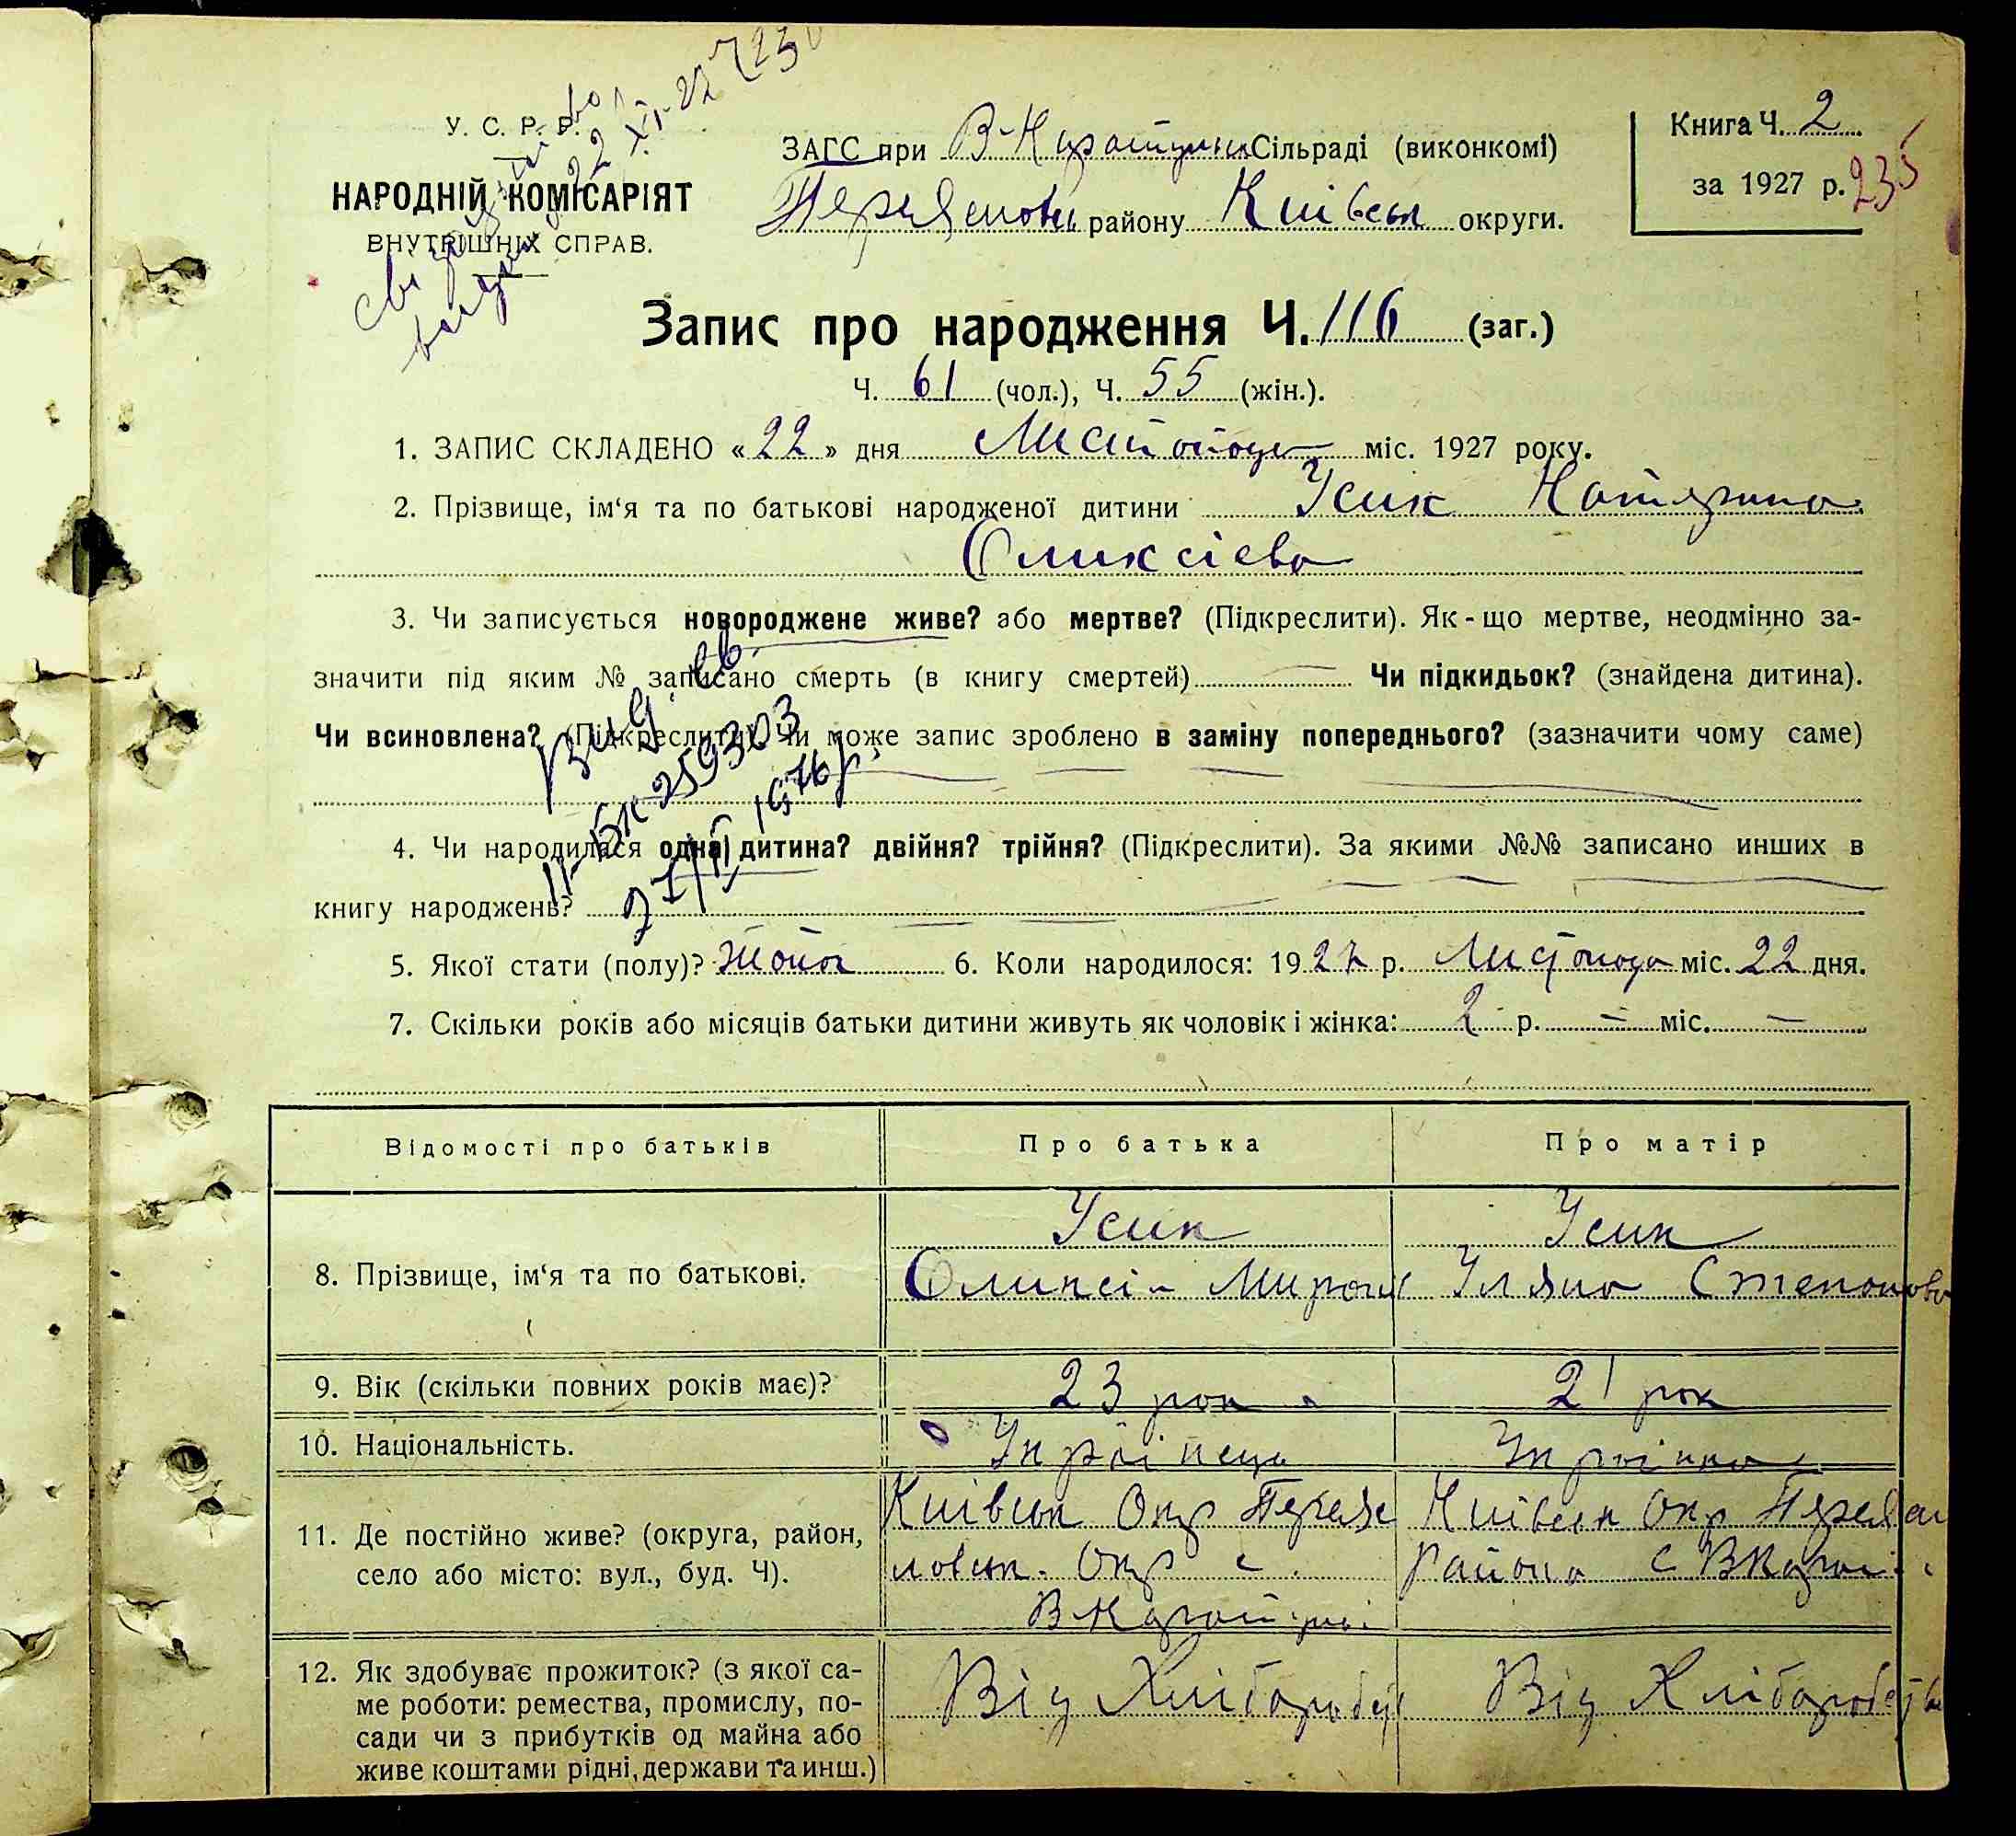 У. С. Р. Р.
НАРОДНІЙ КОМІСАРІЯТ
ВНУТРІШНІХ СПРАВ.
22 XI-27
ЗАГС при В-Каратульс Сільраді (виконкомі)
Переяславсь району Київськ округи.
Книга Ч. 2
за 1927 р. 235
Запис про народження Ч. 116 (заг.)
Ч. 61 (чол.), Ч. 55 (жін.).
1. ЗАПИС СКЛАДЕНО «22» дня Листопада міс. 1927 року.
2. Прізвище, ім‘я та по батькові народженої дитини Усик Катярина
Оликсієва
3. Чи записується новороджене живе? або мертве? (Підкреслити). Як-що мертве, неодмінно за-
значити під яким № записано смерть (в книгу смертей) — Чи підкидьок? (знайдена дитина).
Чи всиновлена? (Підкреслити). Чи може запис зроблено в заміну попереднього? (зазначити чому саме)
Вид. св.
ІІ-БК 259303
1976р.
4. Чи народилася одна дитина? двійня? трійня? (Підкреслити). За якими №№ записано инших в
книгу народжень?
5. Якої стати (полу)? 6. Коли народилося: 1927 р. Листопада міс. 22 дня.
7. Скільки років або місяців батьки дитини живуть як чоловік і жінка: 2 р. — міс. —
Відомості про батьків Про батька Про матір
8. Прізвище, ім‘я та по батькові. Усик Усик
Оликсій Мирон Уляна Степанова
9. Вік (скільки повних років має)? 23 рок 21 рок
10. Національність. Украінець Украінка
11. Де постійно живе? (округа, район,
село або місто: вул., буд. Ч).
Київськ Окр Переяс
ловськ. Окр с.
В Каратулі
Київськ Окр Переяс
района с В Карат
12. Як здобуває прожиток? (з якої са-
ме роботи: ремества, промислу, по-
сади чи з прибутків од майна або
живе коштами рідні, держави та инш.)
Від Хліборобс
Від Хліборобства